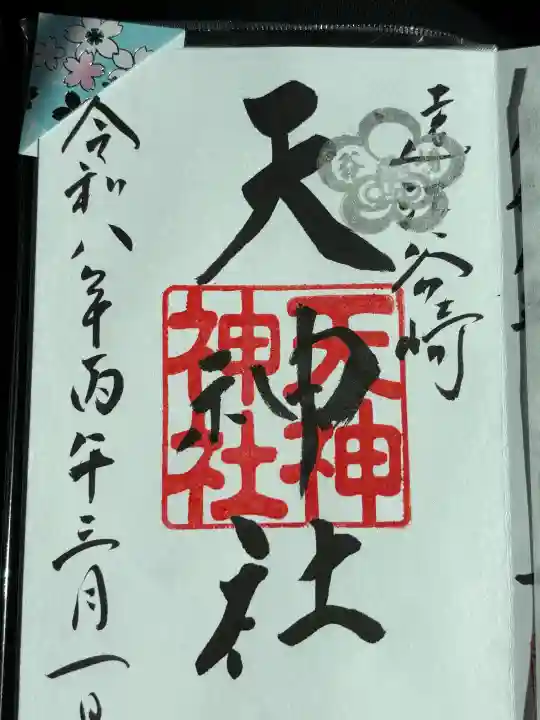 谷崎
天神社
天神
神社
令和八年丙午三月一日